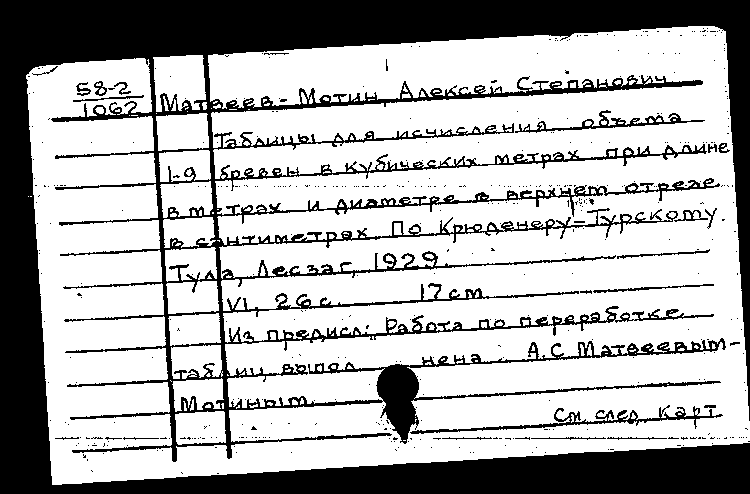 58-2
1062 Матвеев-Мотин, Алексей Степанович
Таблицы для исчисления объема
1-9 бревен в кубических метрах при длине
в метрах и диаметре в верхнем отрезе
в сантиметрах. По Крюденеру-Турскому.
Тула, Лесзаг, 1929.
VI, 26 с. 17 см.
Из предисл.: Работа по переработке
таблиц выпол нена А.С Матвеевым-
Мотиным.
См. след. карт